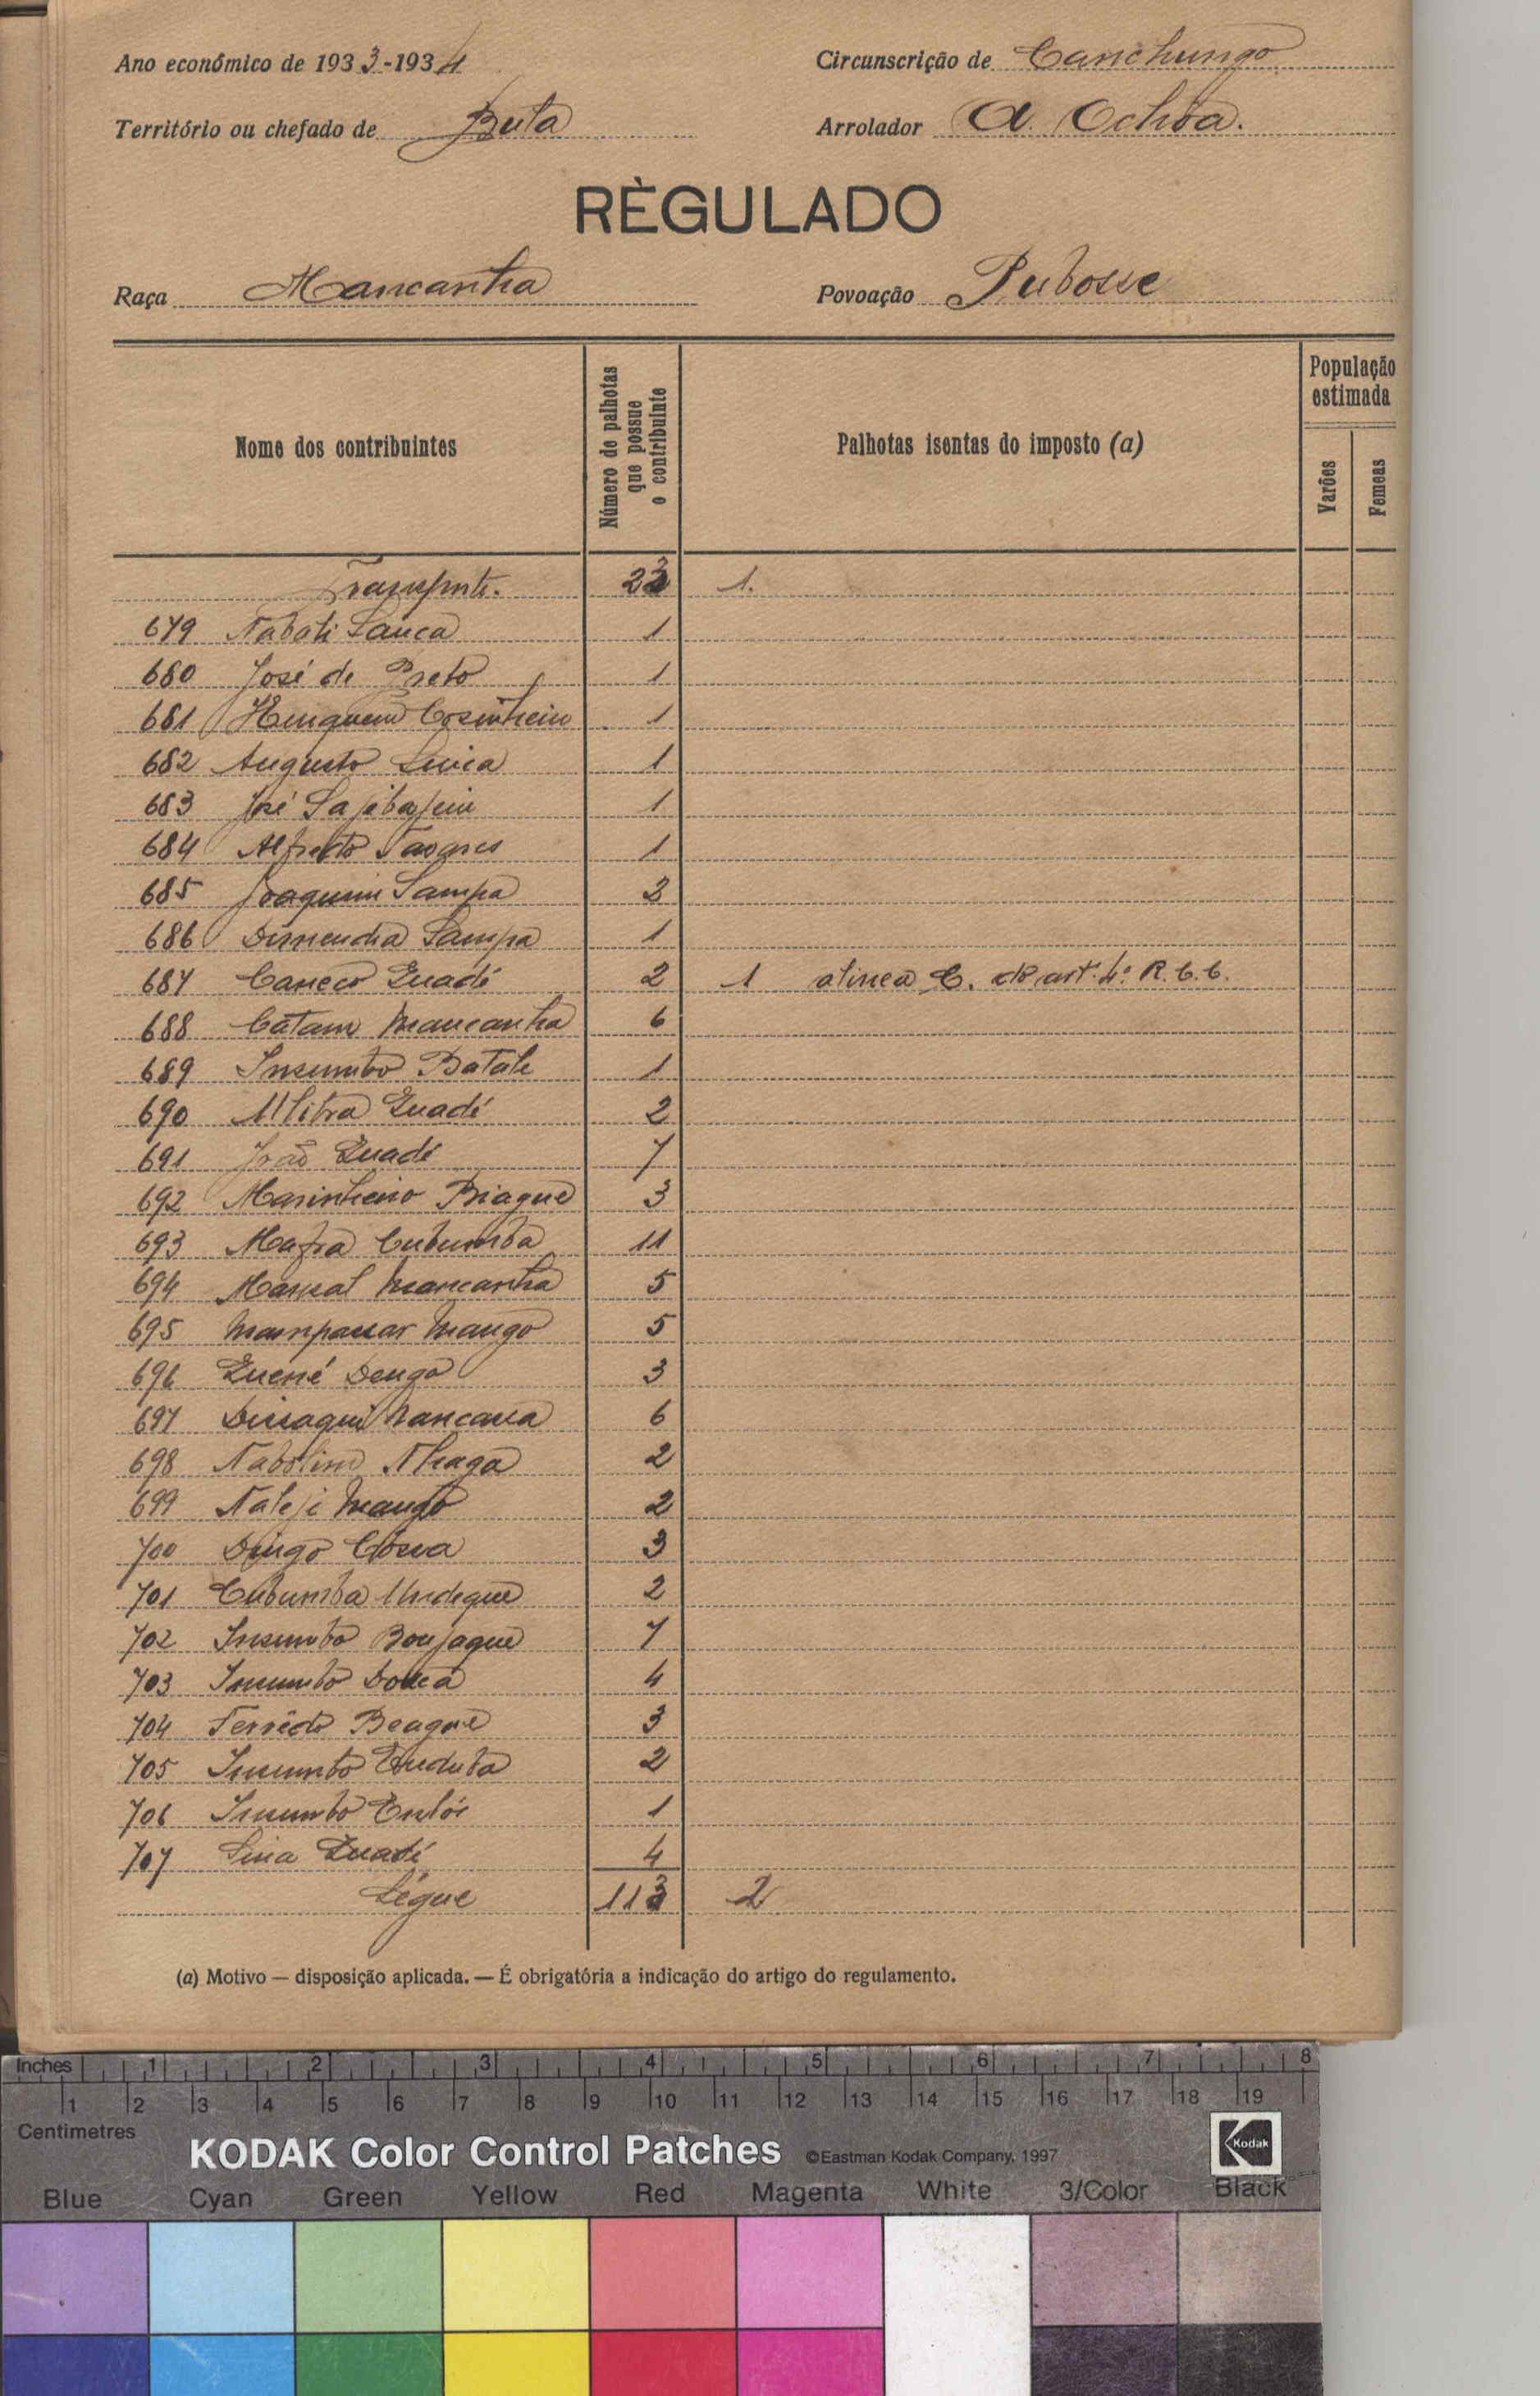 Ano económico de 1933-1934
Circunscrição de Canchungo
Território ou chefado de Bula
Arrolador A. Ochôa.
RÈGULADO
Raça Mancanha
Povoação Pubosse
Nome dos contribuintes
Número de palhotas que possue o contribuinte
Palhotas isentas do imposto (a)
População estimada
Varões
Femeas
Transporte. 23 1.
679 Nabati Sanca 1
680 José de Preto 1
681 Cosinheiro 1
682 Augusto 1
683 José 1
684 Alfredo Tavares 1
685 Joaquim Sampa 2
686 Sampa 1
687 Caneco Quadé 2 1 alinea C. do art. 4.º R. C. C.
688 Catam Mancanha 6
689 Insumbo Batale 1
690 Quadé 2
691 João Quadé 7
692 Marinheiro Biague 3
693 Mafra Cubumba 11
694 Mancanha 5
695 Mango 5
696 Quené Denga 3
697 6
698 Nabolim Nhaga 2
699 Mango 2
700 Dingo 3
701 Cubumba Undeque 2
702 Insumbo 7
703 Insumbo 4
704 Beague 3
705 Insumbo 2
706 Insumbo 1
707 Quadé 4
Ségue 113 2
(a) Motivo — disposição aplicada. — É obrigatória a indicação do artigo do regulamento.
Inches 1 2 3 4 5 6 7 8
1 2 3 4 5 6 7 8 9 10 11 12 13 14 15 16 17 18 19
Centimetres
KODAK Color Control Patches ©Eastman Kodak Company, 1997 Kodak
Blue Cyan Green Yellow Red Magenta White 3/Color Black